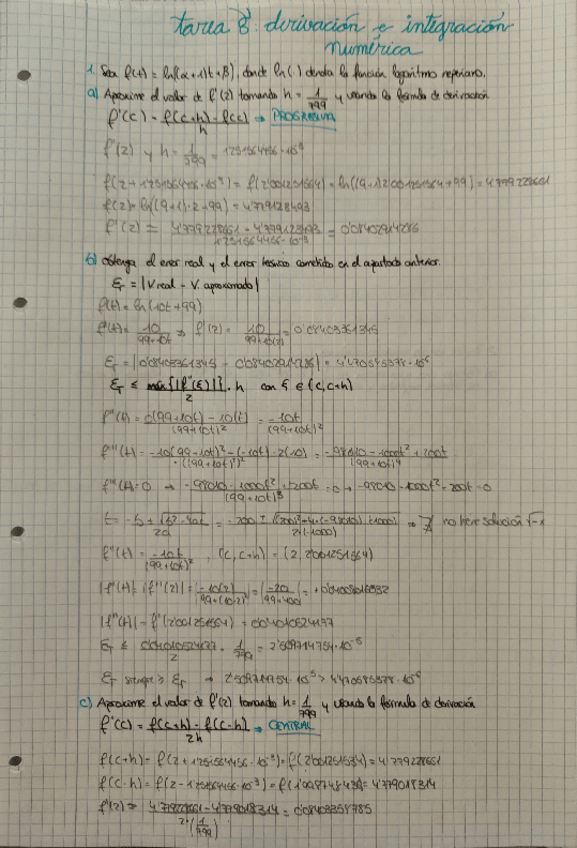 tarea 8: derivación e integración
numérica
1. Sea f(t) = ln((α+1)t+β), donde ln(·) denota la función logaritmo neperiano.
a) Aproxime el valor de f'(2) tomando h = 1/799 y usando la fórmula de derivación
f'(c) = f(c+h) - f(c) / h → PROGRESIVA
f'(2) y h = 1/799 = 1'251564456·10⁻³
f(2+1'251564456·10⁻³) = f(2'001251564) = ln((9+1)2'001251564+99) = 4'779228661
f(2) = ln((9+1)·2+99) = 4'779123493
f'(2) = 4'779228661 - 4'779123493 / 1'251564456·10⁻³ = 0'08402914286
b) obtenga el error real y el error teórico cometido en el apartado anterior.
Er = |V.real - V.aproximado|
f(t) = ln(10t+99)
f'(t) = 10/99+10t ⇒ f'(2) = 10/99+10(2) = 0'08403361345
Er = |0'08403361345 - 0'08402914286| = 4'470585378·10⁻⁶
ET ≤ max{|f''(ξ)|}/2 · h con ξ ∈ (c, c+h)
f''(t) = 0(99+10t) - 10(t) / (99+10t)² = -10t / (99+10t)²
f'''(t) = -10(99+10t)² - (-10t)·2(10) / ((99+10t)²)² = -98010 - 1000t² + 200t / (99+10t)⁴
f'''(t) = 0 → -98010 - 1000t² + 200t / (99+10t)³ = 0 → -98010 - 1000t² + 200t = 0
t = -b ± √b²-4ac / 2a = -200 ± √(200)²-4·(-98010)·(-1000) / 2·(-1000) ⇒ ∄ no tiene solución √-1
f''(t) = -10t / (99+10t)², (c, c+h) = (2, 2'001251564)
|f''(2)| = |-10(2) / 99+(10·2)²| = |-20 / 99+400| =
|f''(t)| = f''(2'001251564) = 0'04010524177
ET ≤ 0'04010524177 / 2 · 1/799 = 2'509714754·10⁻⁵
ET siempre ≥ Er → 2'509714754·10⁻⁵ > 4'470585378·10⁻⁶
c) Aproxime el valor de f'(2) tomando h = 1/799 y usando la fórmula de derivación
f'(c) = f(c+h) - f(c-h) / 2h → CENTRAL
f(c+h) = f(2+1'251564456·10⁻³) = f(2'001251564) = 4'779228661
f(c-h) = f(2-1'251564456·10⁻³) = f(1'998748436) = 4'779018314
f'(2) = 4'779228661 - 4'779018314 / 2·(1/799) = 0'08403358785